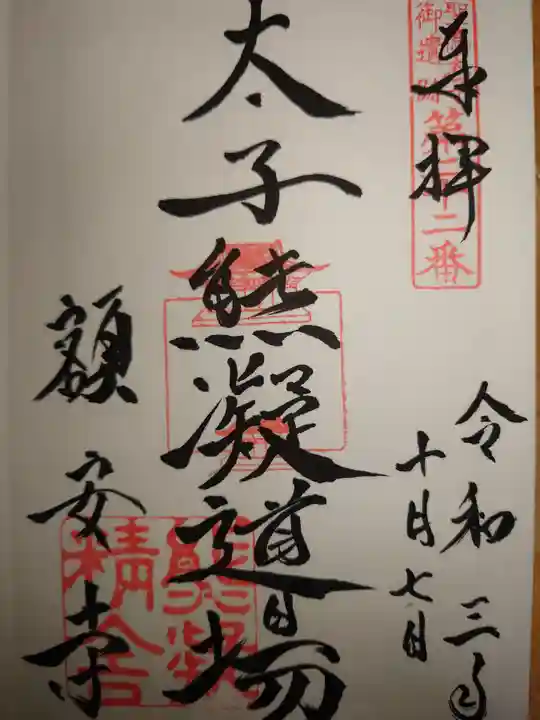 奉拝
聖徳太子御遺跡
第二十二番
令和三年
十月七日
太子熊凝道場
額安寺
熊凝精舎